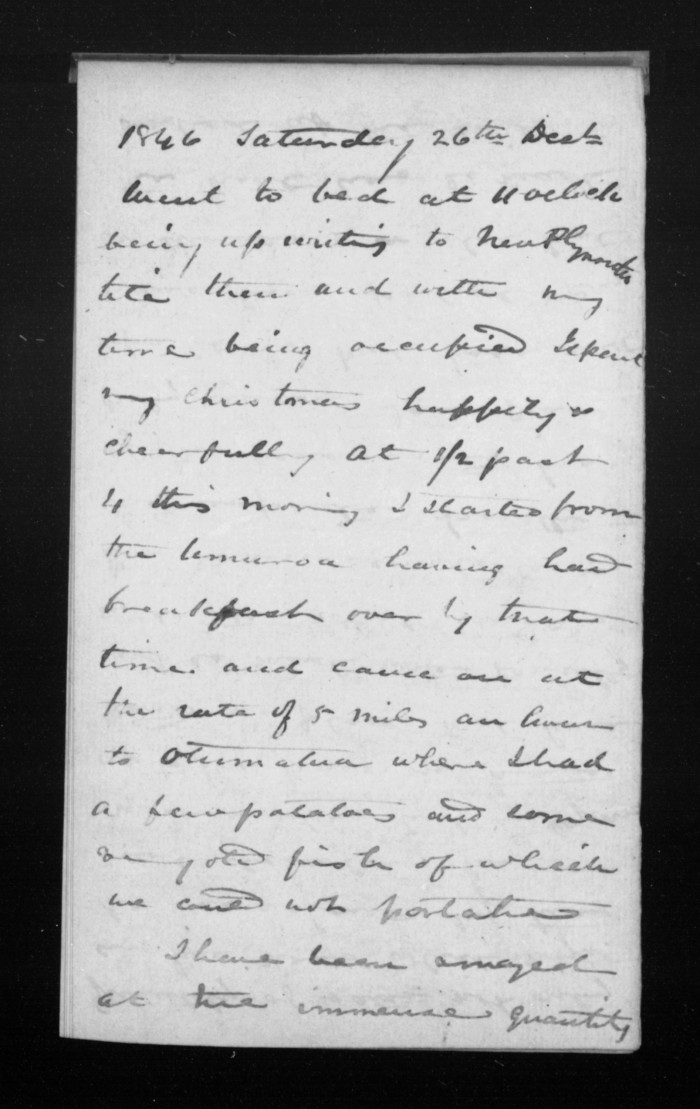 1846 Saturday 26th Decr
Went to bed at 11 oclock
being up writing to New Plymouth
till then and with my
time being occupied I spent
my Christmas happily &
cheerfully At 1/2 past
4 this morning I started from
the Umuroa having had
breakfast over by that
time. and came on at
the rate of 5 miles an hour
to Otumatua where I had
a few potatoes and some
fish of which
we could not partake
I have been amazed
at the immense quantity